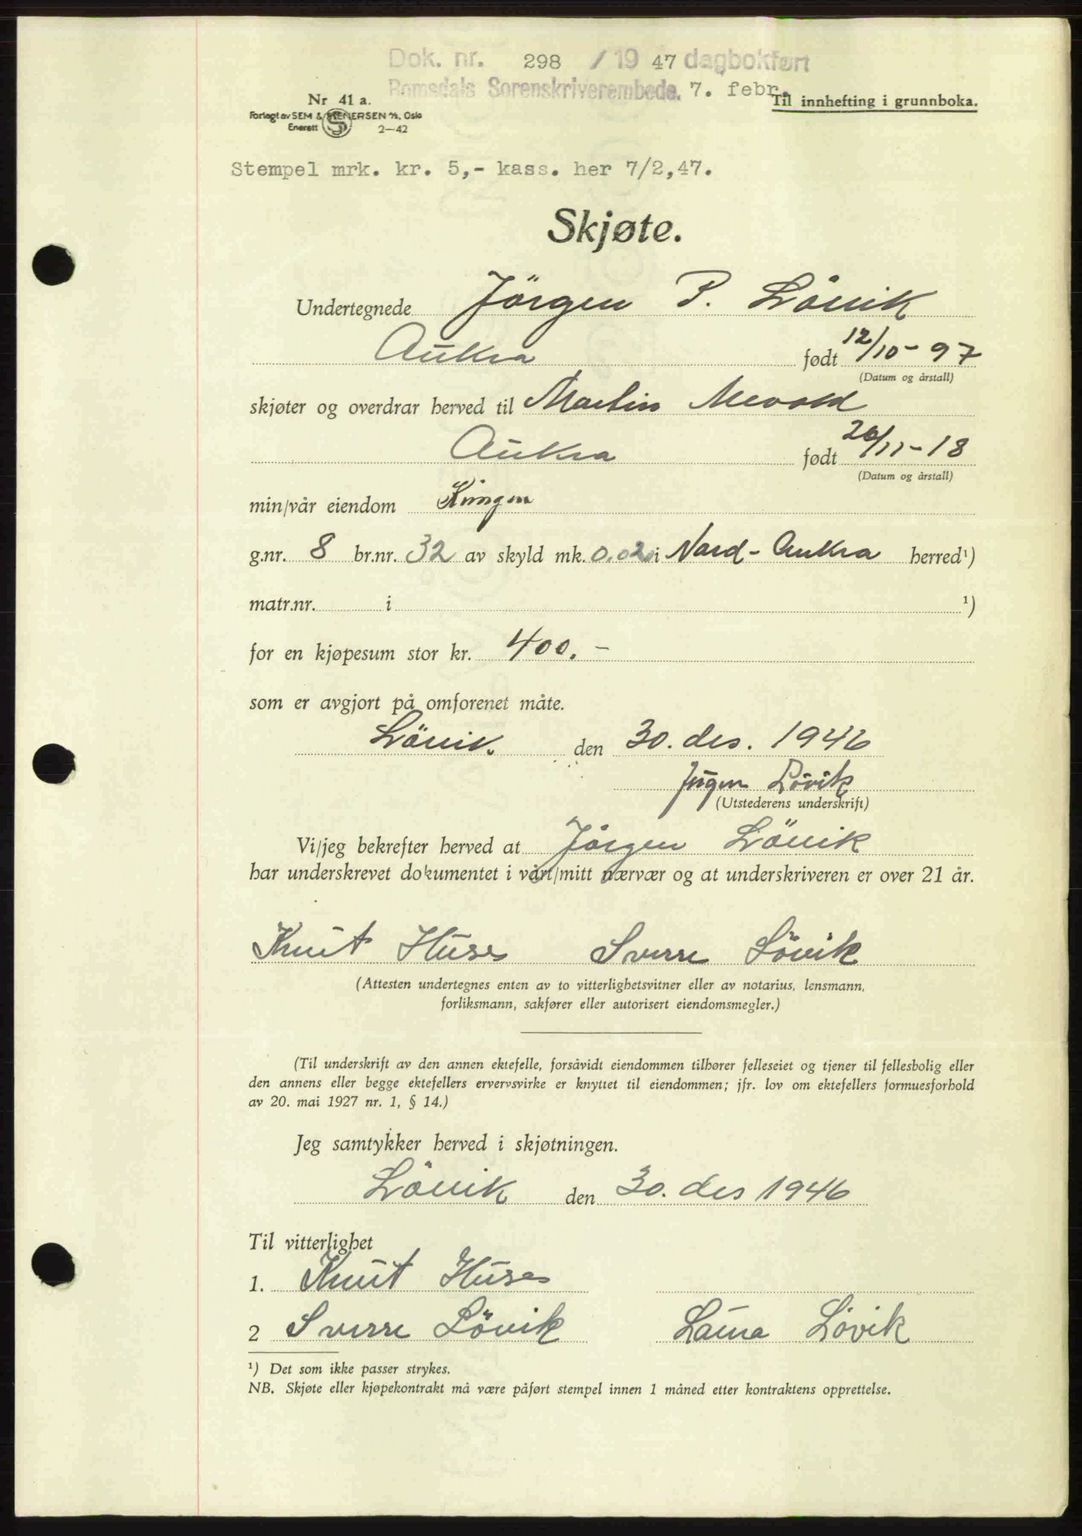 Dok. nr. 298 / 19 47 dagbokført
Romsdals Sorenskriverembede. 7. febr.
Nr 41 a.
Til innhefting i grunnboka.
Forlagt av SEM & STENERSEN A/S, Oslo
Enerett 2—42
Stempel mrk. kr. 5,- kass. her 7/2,47.
Skjøte.
Undertegnede Jörgen P. Lövik
Aukra født 12/10-97
(Datum og årstall)
skjøter og overdrar herved til Martin
Aukra født 26/11-18
(Datum og årstall)
min/vår eiendom
g.nr. 8 br.nr. 32 av skyld mk. 0.02 i Nord-Aukra herred¹)
matr.nr. i ¹)
for en kjøpesum stor kr. 400.-
som er avgjort på omforenet måte.
Lövik. den 30. des. 1946
Jörgen Lövik
(Utstederens underskrift)
Vi/jeg bekrefter herved at Jörgen Lövik
har underskrevet dokumentet i vårt/mitt nærvær og at underskriveren er over 21 år.
Knut Huses Sverre Lövik
(Attesten undertegnes enten av to vitterlighetsvitner eller av notarius, lensmann,
forliksmann, sakfører eller autorisert eiendomsmegler.)
(Til underskrift av den annen ektefelle, forsåvidt eiendommen tilhører felleseiet og tjener til fellesbolig eller
den annens eller begge ektefellers ervervsvirke er knyttet til eiendommen; jfr. lov om ektefellers formuesforhold
av 20. mai 1927 nr. 1, § 14.)
Jeg samtykker herved i skjøtningen.
Lövik den 30. des 1946
Til vitterlighet
1. Knut Huses
2 Sverre Lövik Laura Lövik
¹) Det som ikke passer strykes.
NB. Skjøte eller kjøpekontrakt må være påført stempel innen 1 måned etter kontraktens opprettelse.